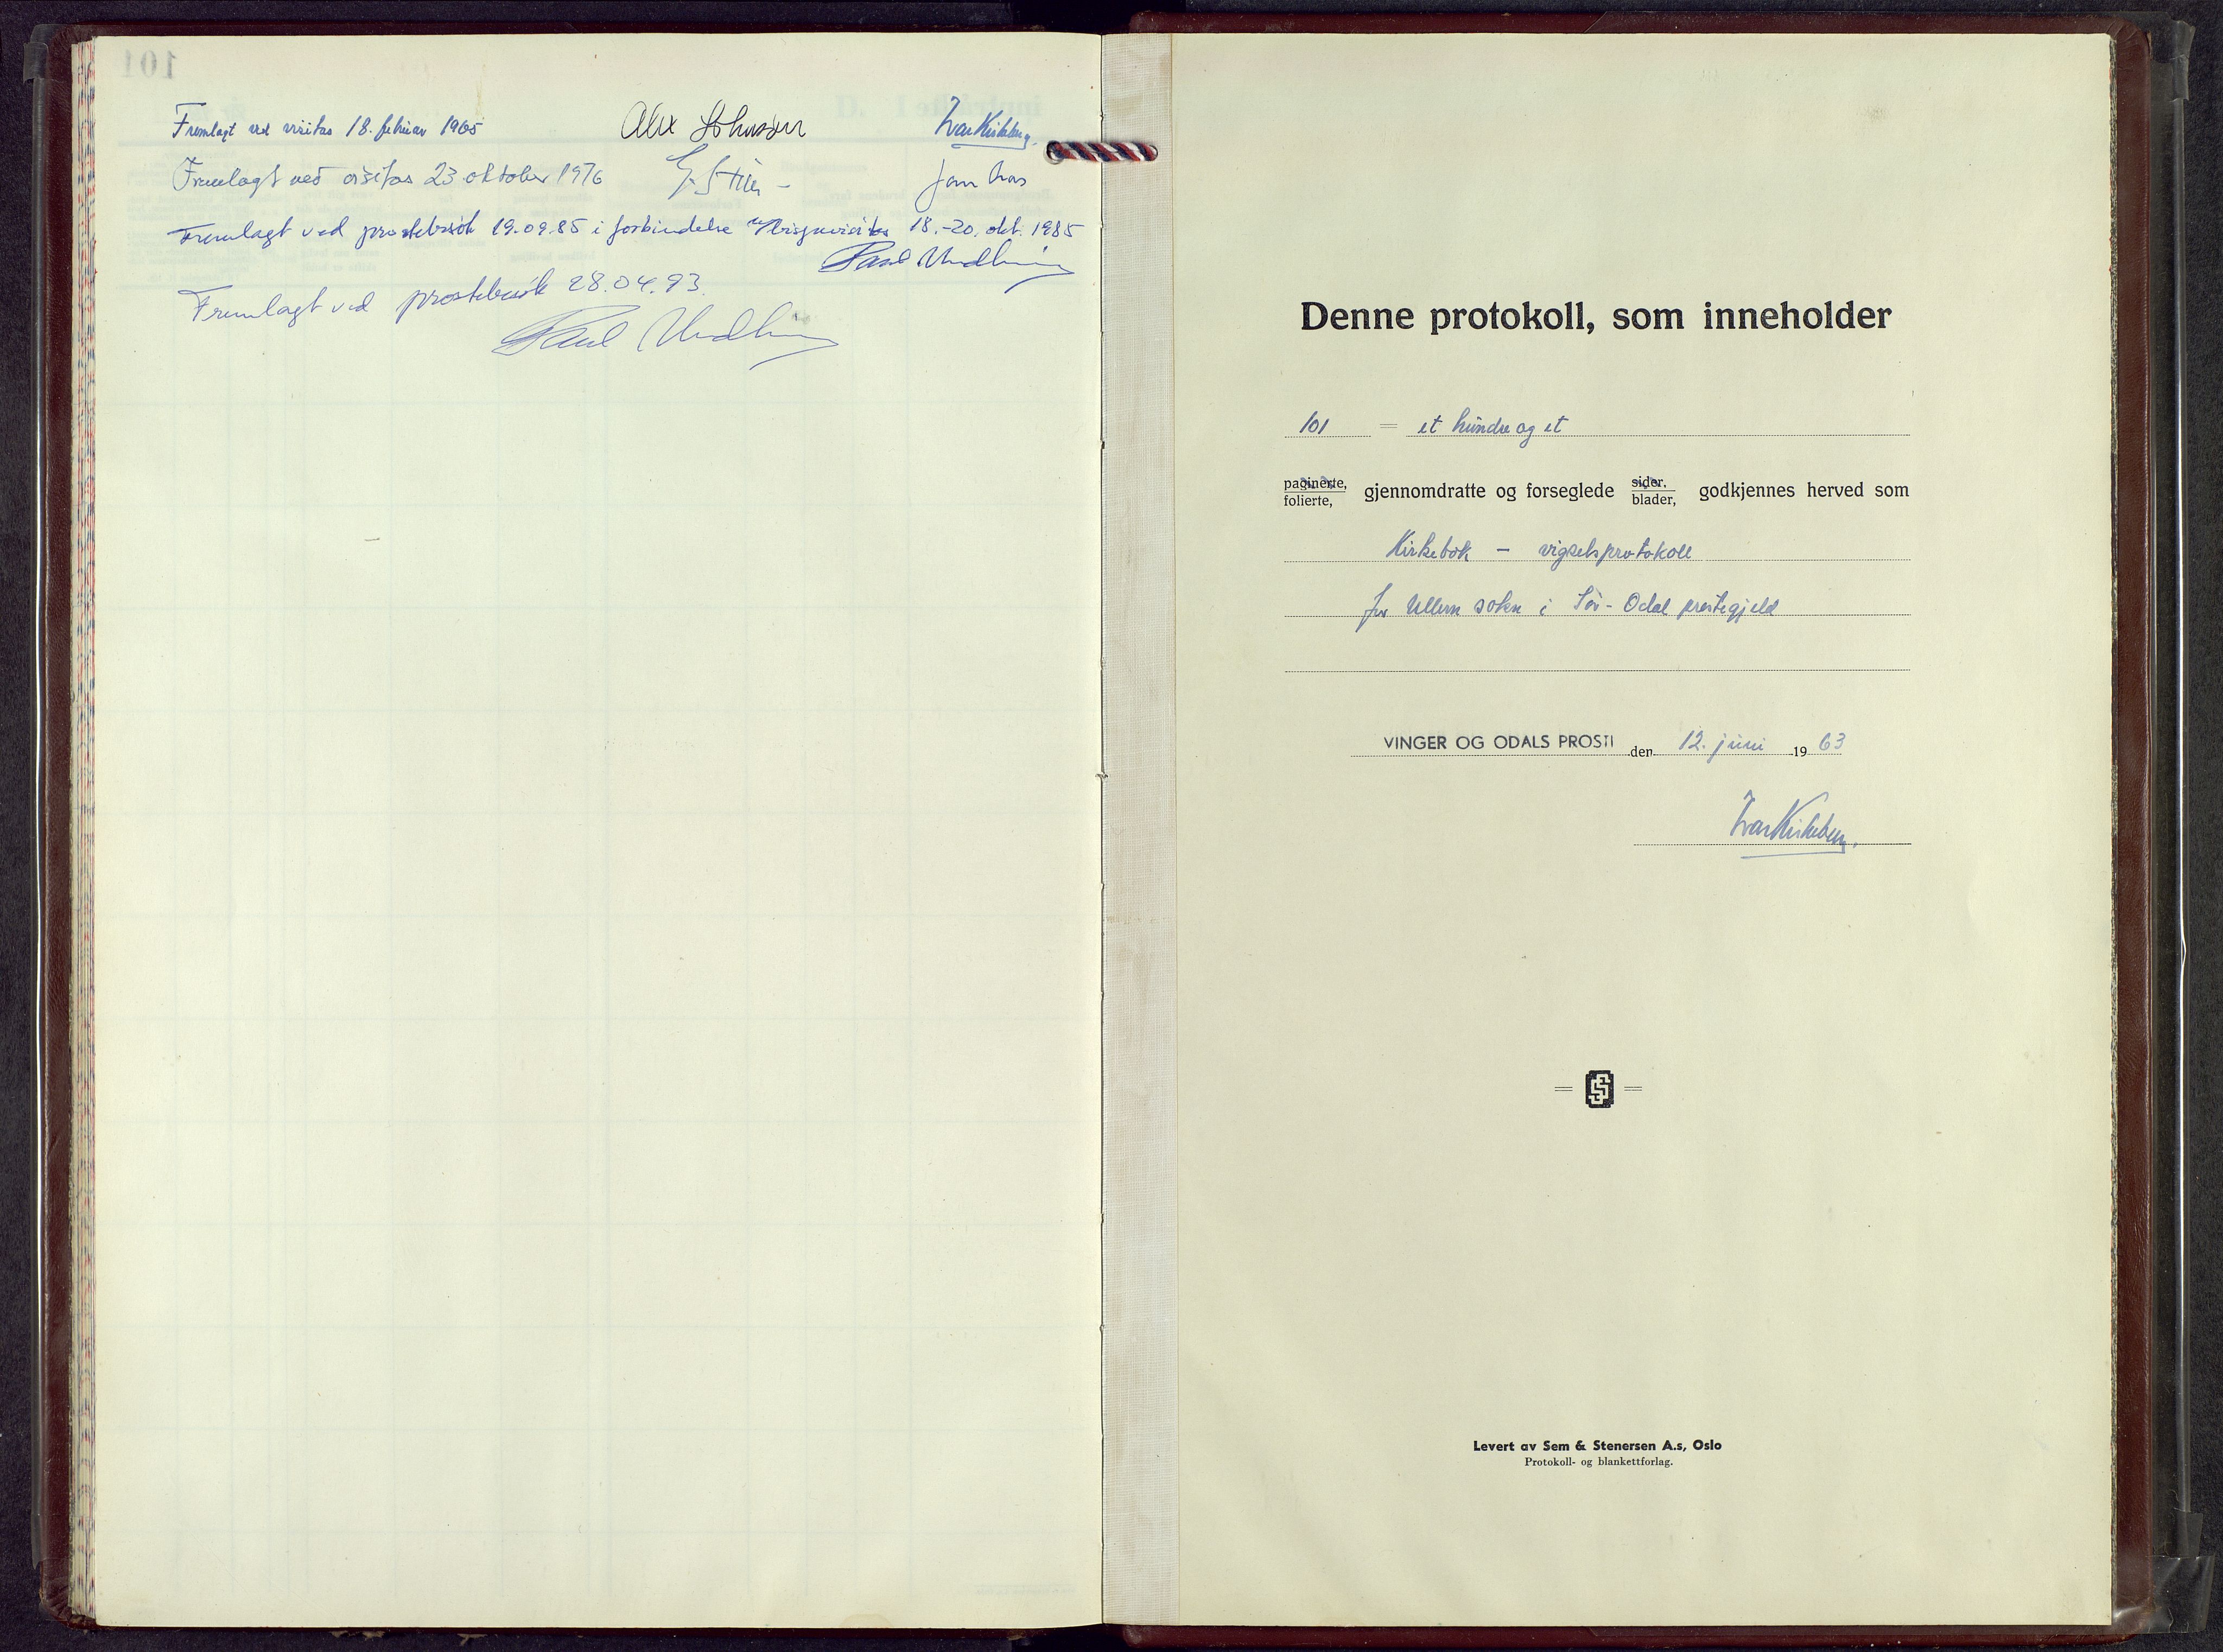 101
Fremlagt ved visitas 18. februar 1965 Alex Johnson Ivar Kirkeberg.
Fremlagt ved visitas 23 oktober 1976
Fremlagt ved prostebesøk 19.09.85 i forbindelse m/bispevisitas 18.-20. okt. 1985
Paul
Fremlagt ved prostebesøk 28.04.93.
Paul
Denne protokoll, som inneholder
101 = et hundre og et
paginerte, folierte, gjennomdratte og forseglede sider, blader, godkjennes herved som
Kirkebok - vigselsprotokoll
for Ullern sokn i Sør-Odal prestegjeld
VINGER OG ODALS PROSTI den 12. juni 1963
Ivar Kirkeberg.
Levert av Sem & Stenersen A.s, Oslo
Protokoll- og blankettforlag.